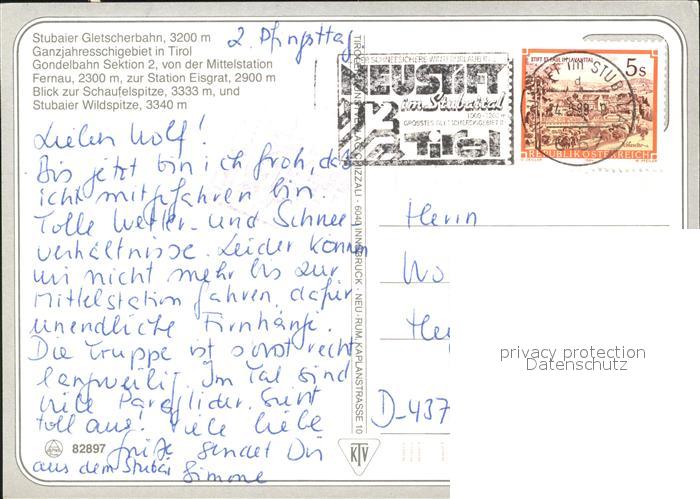 Stubaier Gletscherbahn, 3200 m
Ganzjahresschigebiet in Tirol
Gondelbahn Sektion 2, von der Mittelstation
Fernau, 2300 m, zur Station Eisgrat, 2900 m
Blick zur Schaufelspitze, 3333 m, und
Stubaier Wildspitze, 3340 m
2. Pfingsttag
Lieber Wolf!
Bis jetzt bin ich froh, das
ich mitgefahren bin.
Tolle Wetter- und Schnee
verhältnisse. Leider können
wir nicht mehr bis zur
Mittelstation fahren, dafür
unendliche Firnhänge.
Die Truppe ist sonst recht
langweilig. Im Tal sind
viele Paraglider. Sieht
toll aus! Viele liebe
Grüße sendet Dir
aus dem Stubai Simone
82897
INNSBRUCK - NEU-RUM, KAPLANSTRASSE 10
KTV
NEUSTIFT
im Stubaital
Tirol
STIFT ST. PAUL IM LAVANTTAL
5s
REPUBLIK ÖSTERREICH
Herrn
Wo
D-437
privacy protection
Datenschutz